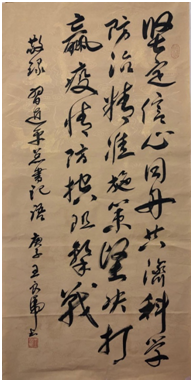 坚定信心同舟共济科学
防治精准施策坚决打
赢疫情防控阻击战
敬录习近平总书记语 庚子王良虎书